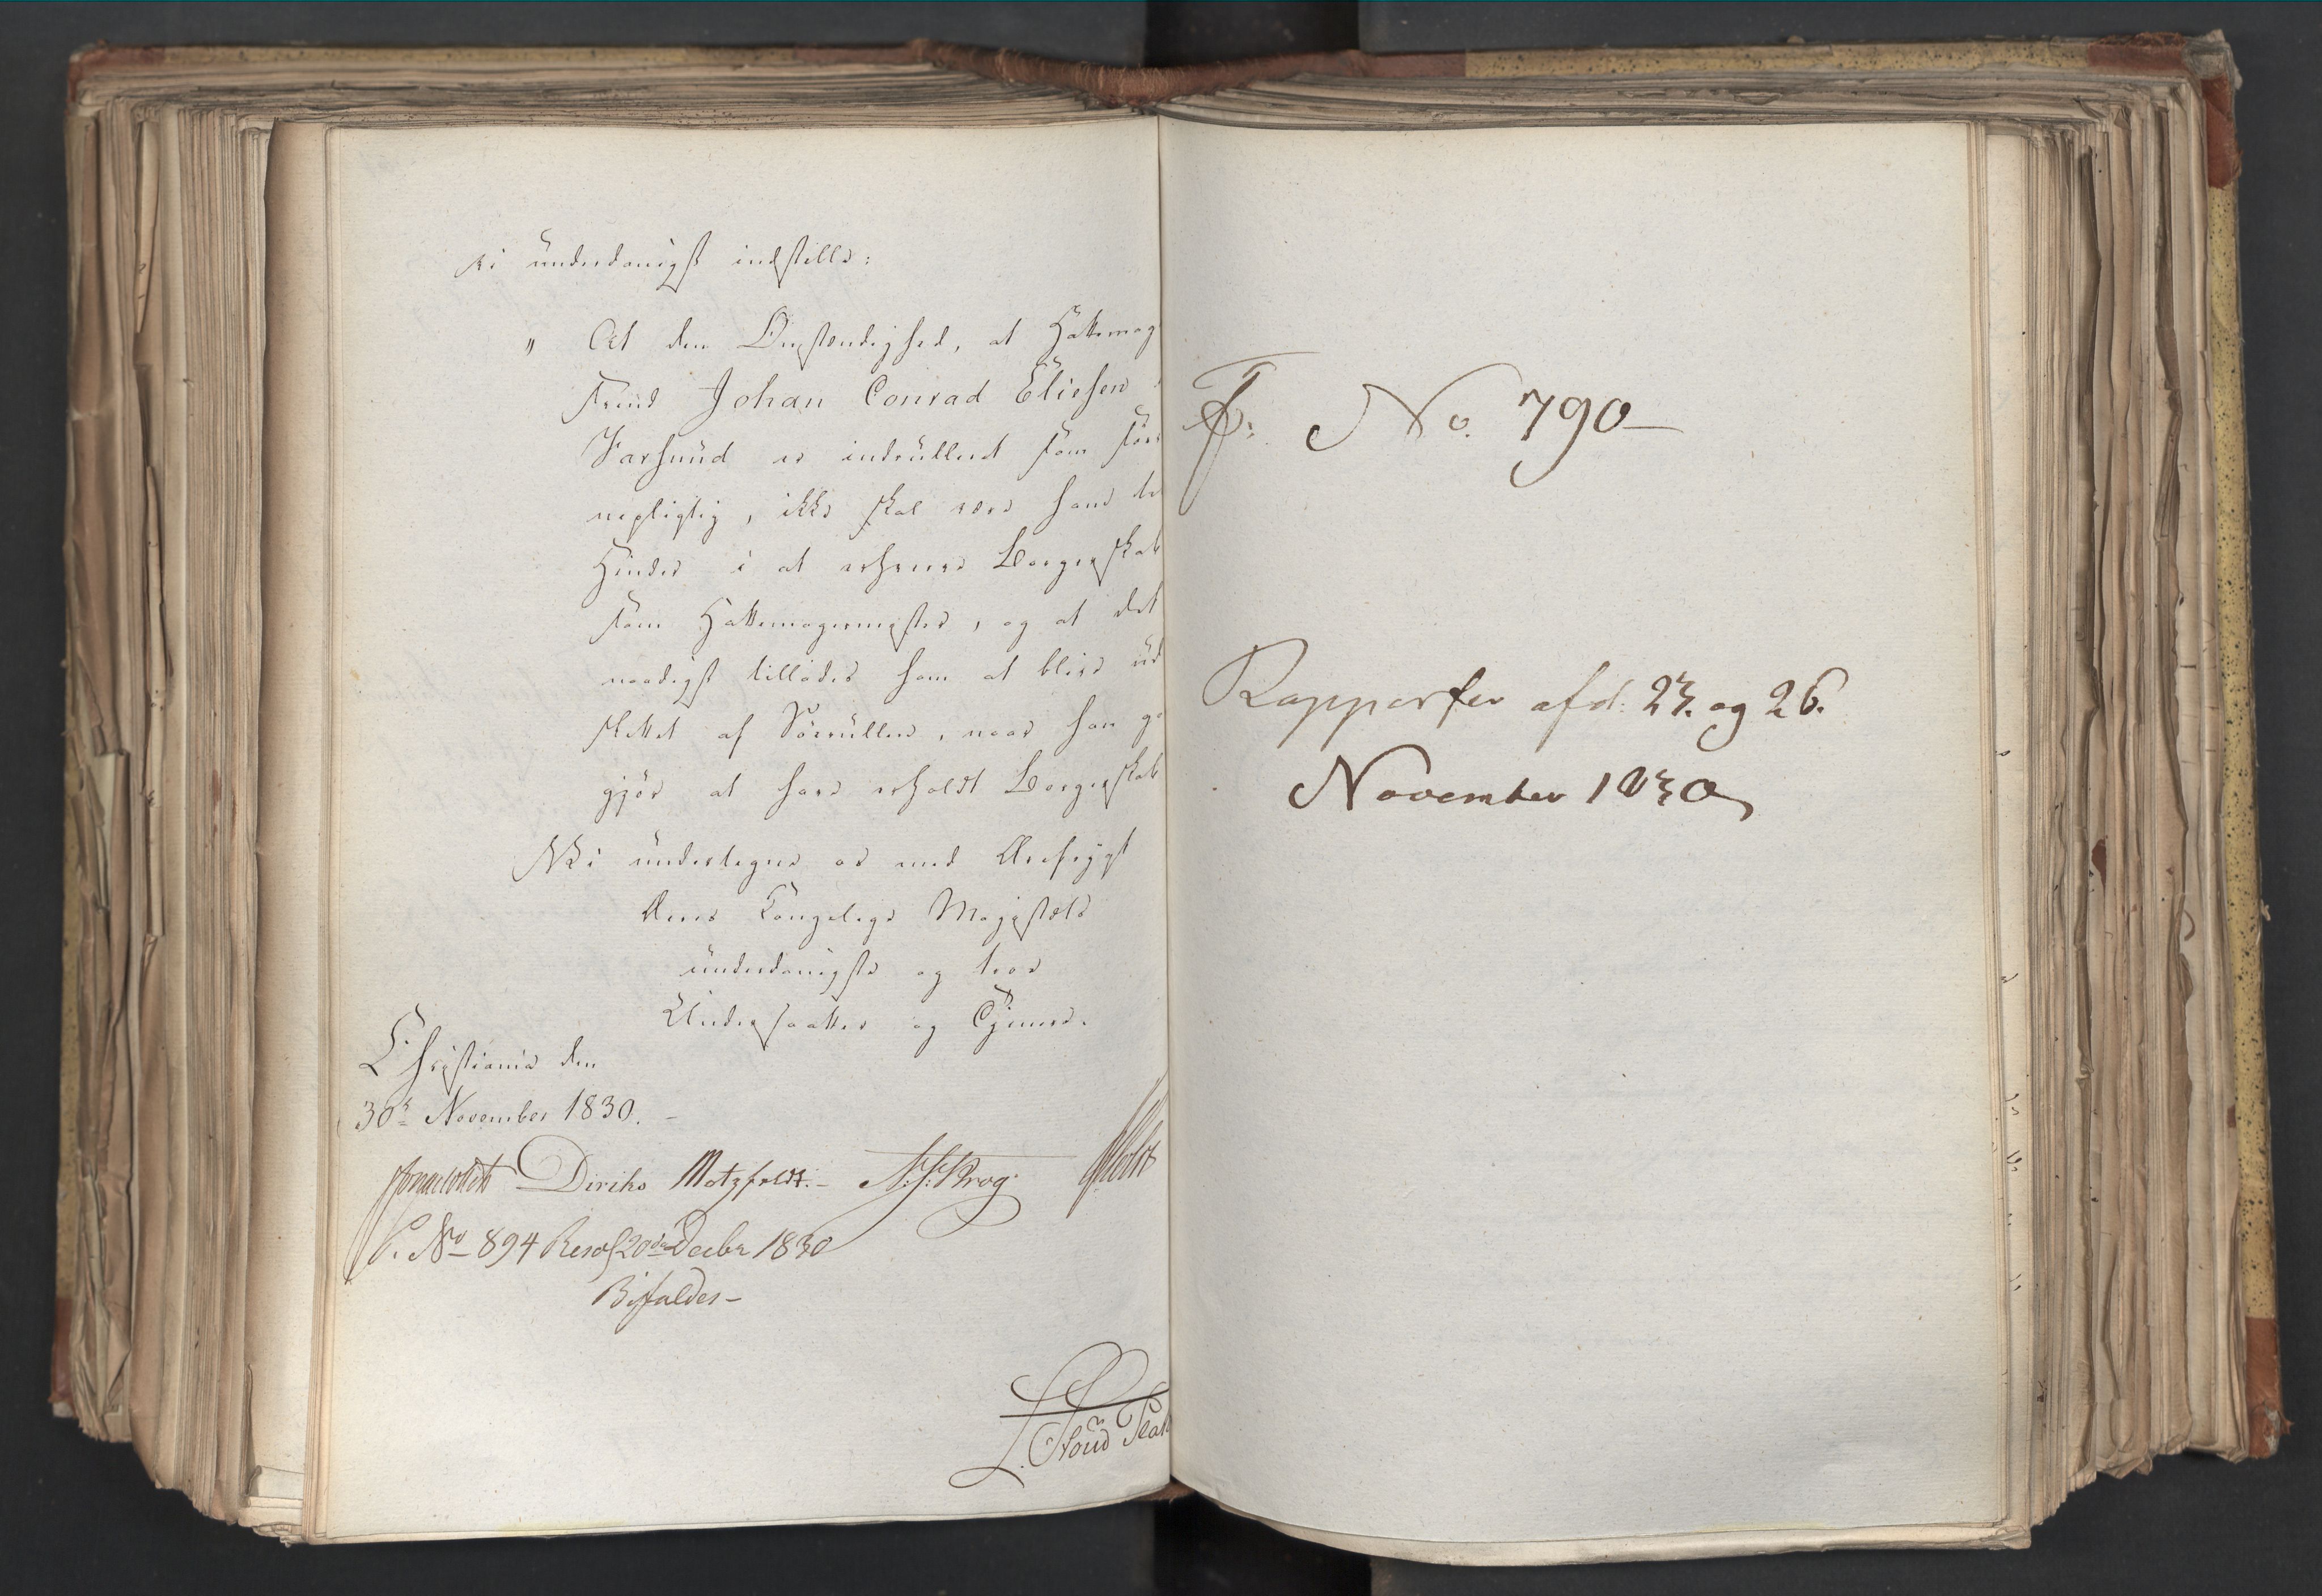 vi underdanigst indstille:
" At den Omstændighed, at Hattemag
svend Johan Conrad Eliesen i
Farsund er indrulleret som söe
nepligtig, ikke skal være ham til
Hinder i at erhverve Borgerskab
som Hattemagermester, og at det
naadigst tillades ham at blive ud
slettet af Söerullen, naar han go
gjör at have erholdt Borgerskab
Vi undertegne os med Ærefrygt
Deres Kongelige Majestæts
underdanigste og troe
Undersaatter og Tjenere.
Christiania den
30te November 1830. -
Diriks Motzfeldt. - Krog
No 894 Resol 20de Decbr 1830
Bifaldes -
No. 790
Rapporter afd: 23. og 26.
November 1830